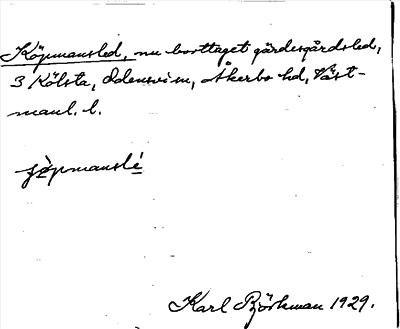 Köpmansled, nu borttaget gärdesgårdsled,
3 Kölsta, Odensvi sn, Åkerbo hd, Väst-
manl. l.
jö̀pmanslé
Karl Björkman 1929.